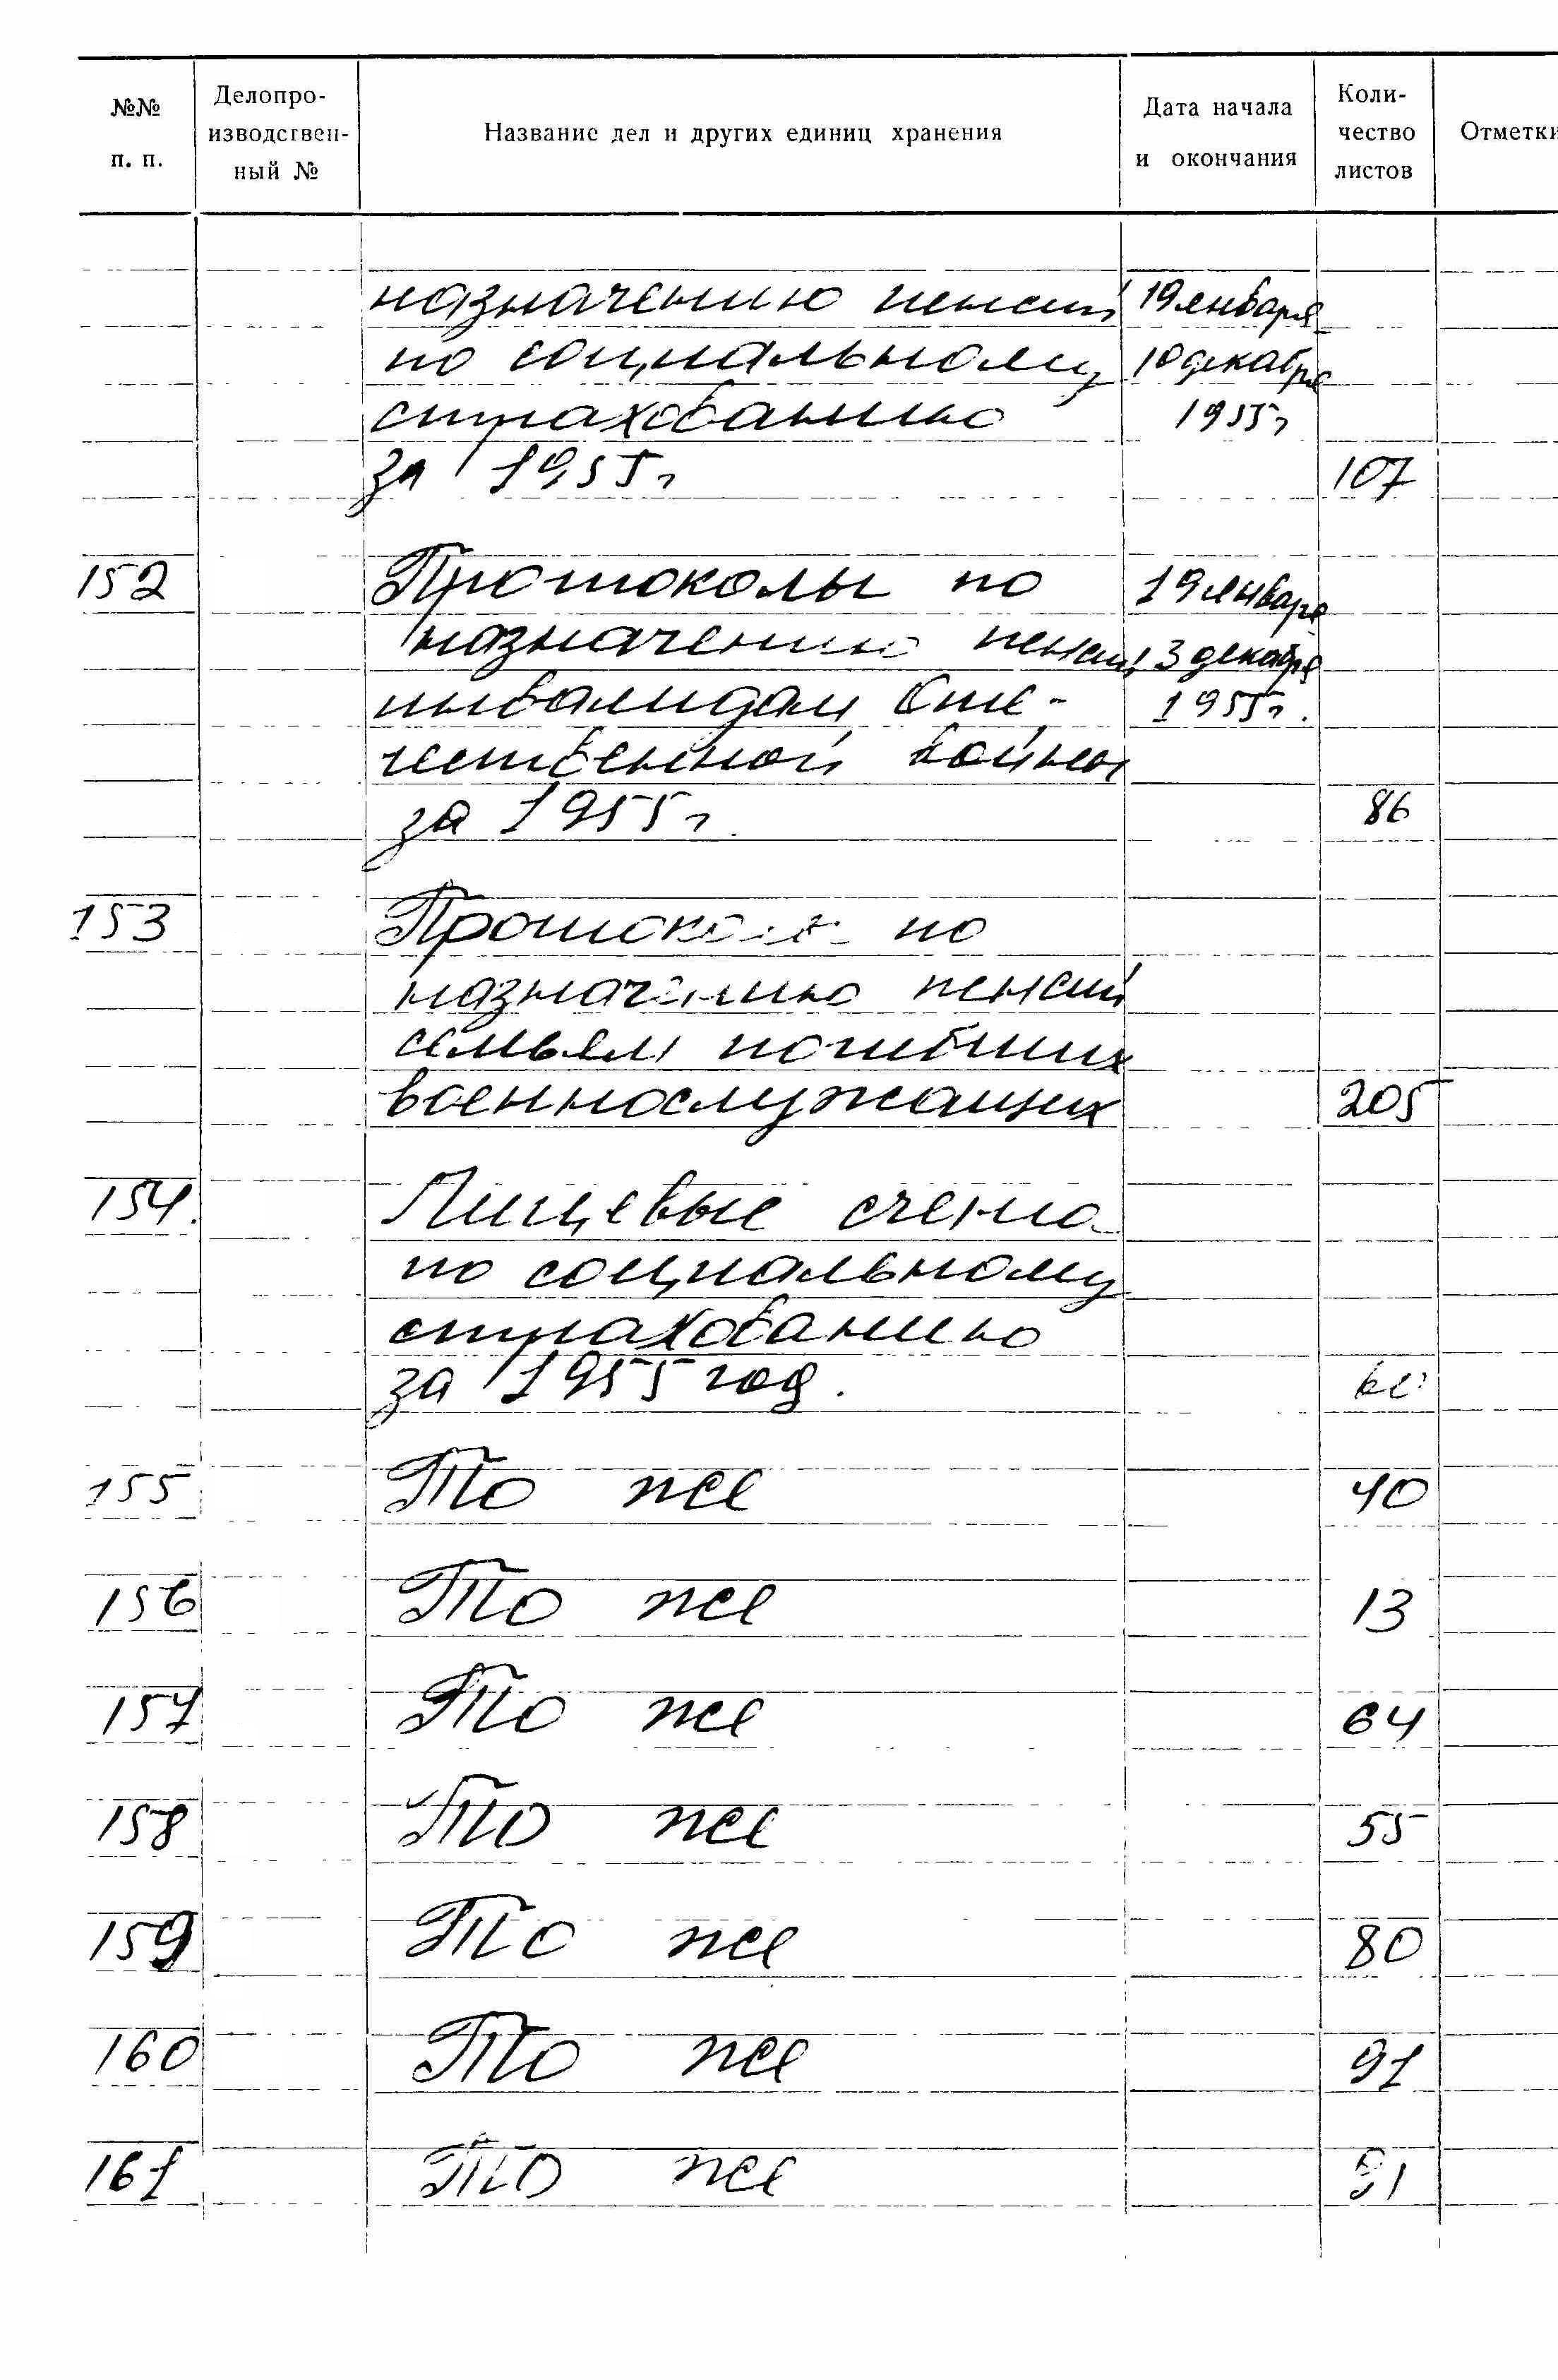 №№ п. п. Делопроизводствен-ный № Название дел и других единиц хранения Дата начала и окончания Коли-чество листов Отметки
назначению пенсий 19 января
по социальному 10 декабря
страхованию 1955г
за 1955г 107
152 Протоколы по 19 января
назначению пенсий 3 декабря
инвалидам Оте- 1955г.
чественной войны
за 1955г. 86
153 Протоколы по
назначению пенсий
семьям погибших
военнослужащих 205
154. Лицевые счета
по социальному
страхованию
за 1955 год.
155 То же 40
156 То же 13
157 То же 64
158 То же 55
159 То же 80
160 То же 91
161 То же